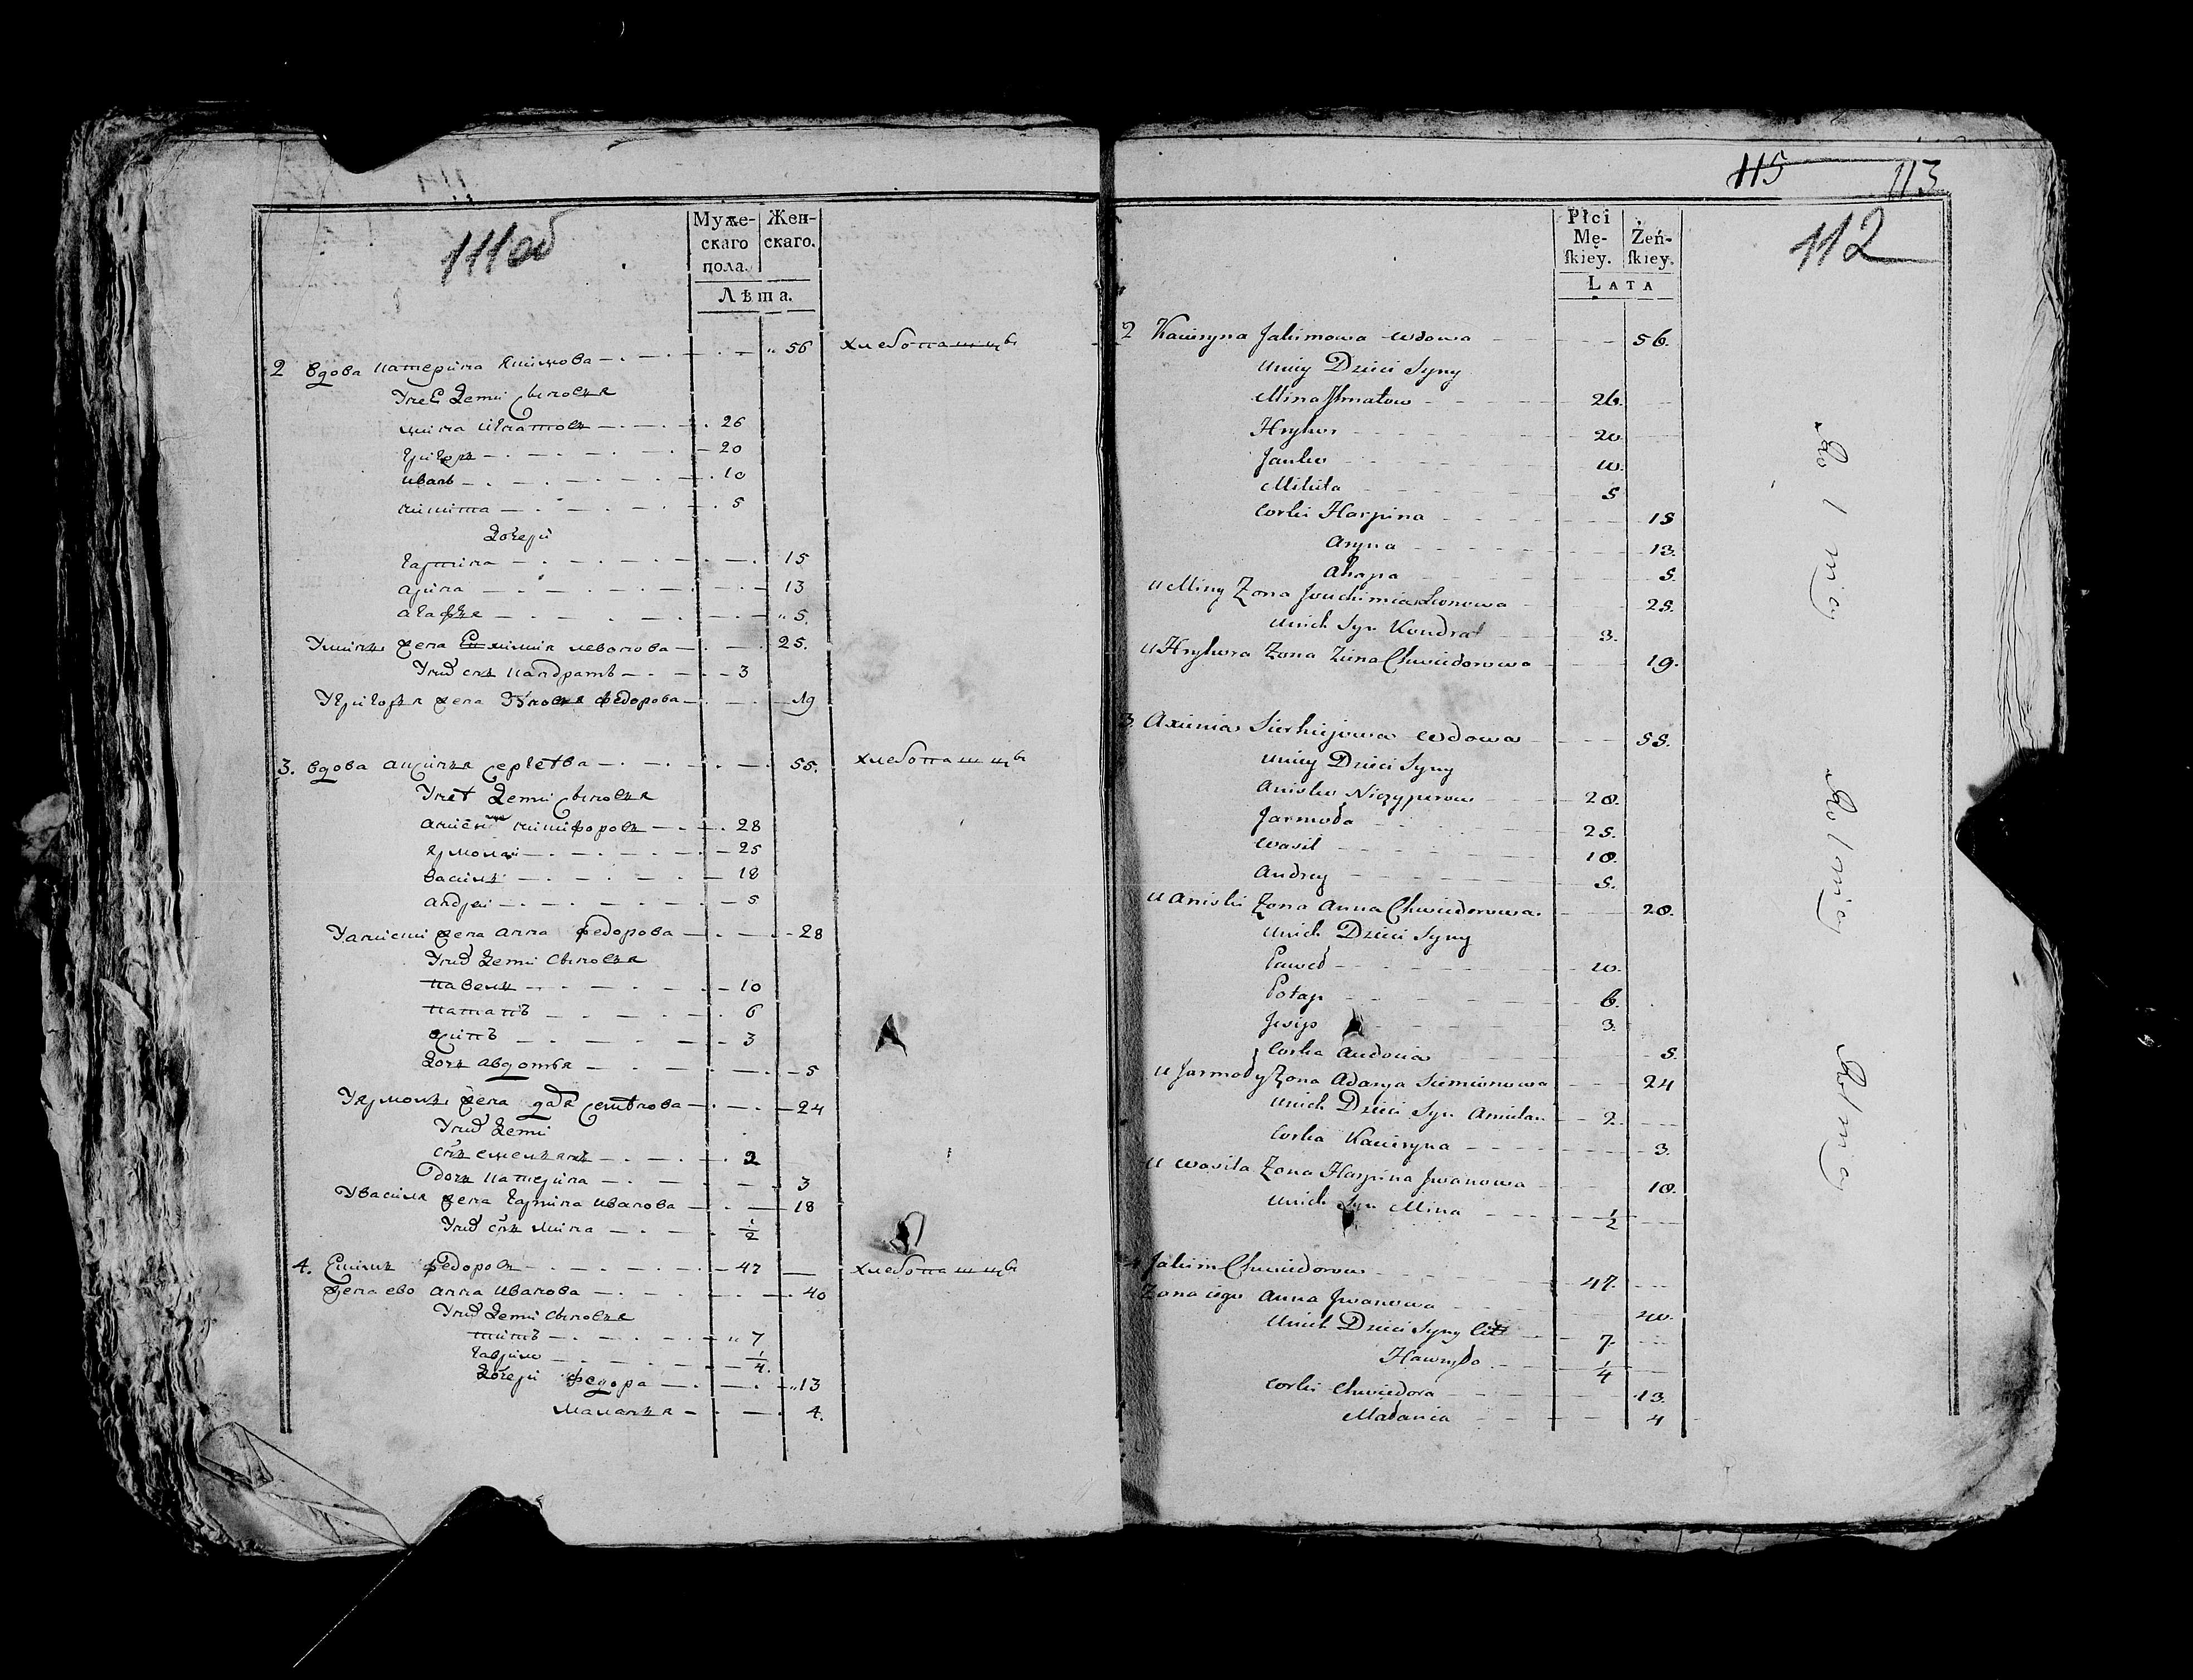 111об
Муже-
скаго
пола.
Жен-
скаго.
Лѣта.
2 вдова катерина якимова 56 хлебопашцы
У нее дети сыновья
мина игнатовъ 26
григоръ 20
иванъ 10
никита 5
дочери
гарпина 15
арина 13
агафья 5.
У мины жена левонова 25.
У них сынъ кандратъ 3
У григоръя жена федорова 19
3. вдова аксинья сергеева 55. хлебопашцы
У нее дети сыновья
никифоровъ 28
ярмолай 25
василь 18
андреи 5
жена анна федорова 28
У них дети сыновья
павелъ 10
патапъ 6
осипъ 3
дочь авдотья 5
жена семенова 24
У них дети
сынъ емельянъ 2
дочь катерина 3
У василя жена гарпина иванова 18
У них сынъ мина 1/2
4. Екимъ федоровъ 47 хлебопашцы
жена ево анна иванова 40
У них дети сыновья
титъ 7
гаврило 1/4.
дочери федора 13
маланья 4.
115 113
112
Płci
Mę-
skiey.
Żeń-
skiey.
LATA
2 Kaciryna Jakimowa wdowa 56.
uniey Dzieci Syny
Mina Ihnatow 26.
Hryhor 20.
Janko 10.
Mikita 5
Corki Harpina 15
Aryna 13.
Ahapa 5.
u Miny Zona Leonowa 25.
unich Syn Kondrat 3.
u Hryhora Zona Zina Chwiedorowa 19.
3. Axinia Sierhiejowa wdowa 55.
uniey Dzieci Syny
Anisko Niczyporow 28.
Jarmoła 25.
Wasil 18.
Andrey 5.
u Aniski Zona Anna Chwiedorowa. 28.
unich Dzieci Syny
Paweł 10.
Potap 6.
Josip 3.
Corka Audocia 5.
u Jarmoły Zona Adarya Siemionowa 24
unich Dzieci Syn 2.
Corka Kaciryna 3.
u Wasila Zona Harpina Jwanowa 18.
unich Syn Mina 1/2
4 Jakim Chwiedorow 47.
Zona iego Anna Jwanowa 40.
unich Dzieci Syny 7.
Hawryło 1/4
Corki Chwiedora 13.
Małania 4